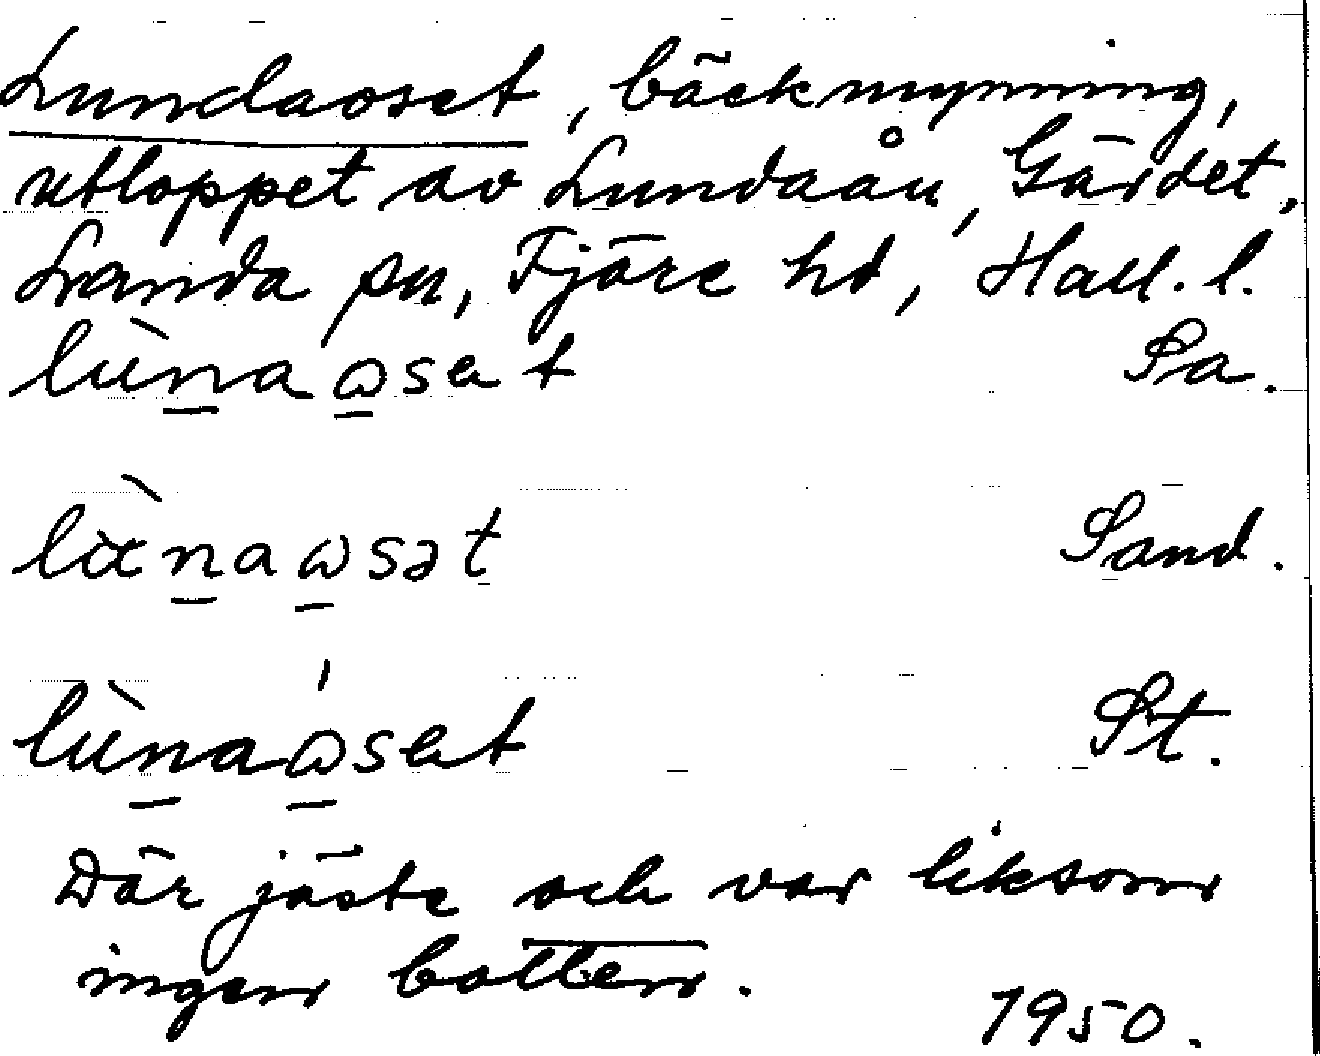 Lundaoset, bäckmynning,
utloppet av Lundaån, Gärdet,
Landa sn, Fjäre hd, Hall. l.
lùnaωset Sa.
lùnaωsət Sand.
lùnaωset St.
Där jäste och var liksom
ingen botten.
1950.